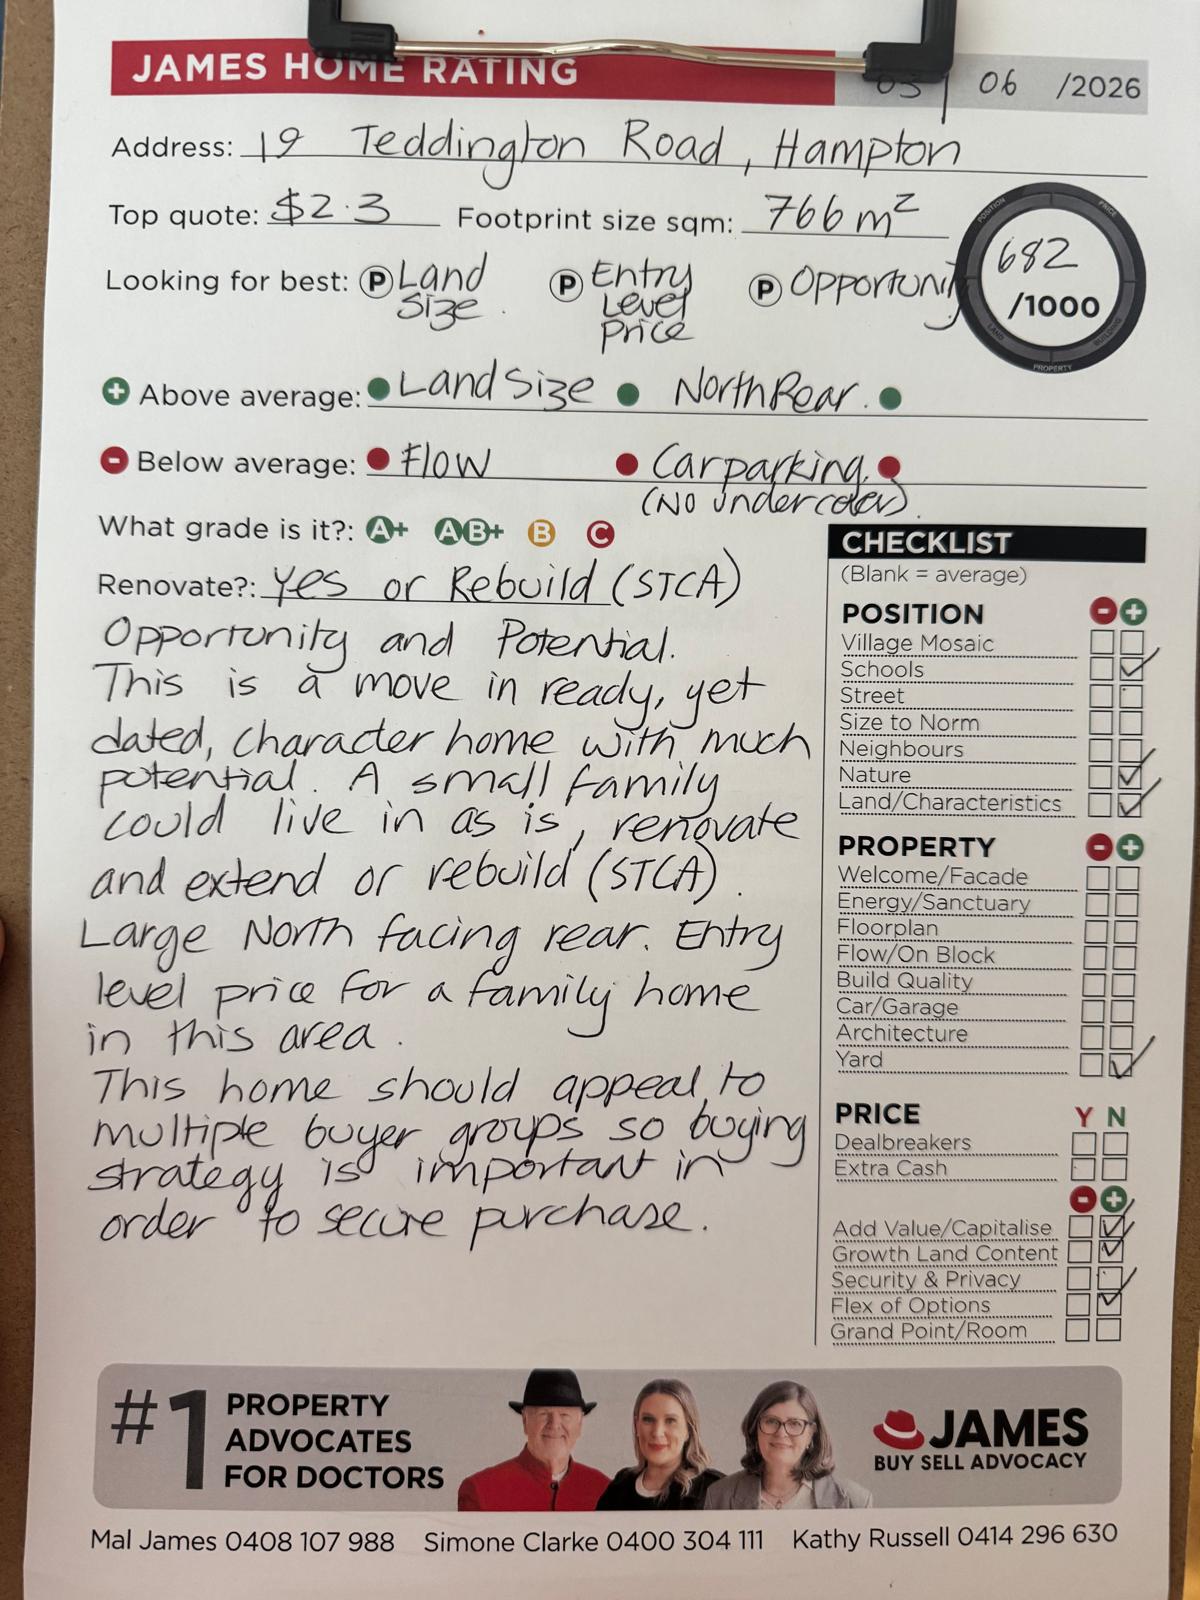 JAMES HOME RATING
03 / 06 /2026
Address: 19 Teddington Road, Hampton
Top quote: $2.3 Footprint size sqm: 766m²
682
/1000
POSITION PRICE LAND BUILDING PROPERTY
Looking for best: P Land Size. P Entry Level Price P Opportunity
+ Above average: Land Size North Rear.
- Below average: Flow Carparking.
(No undercover).
What grade is it?: A+ AB+ B C
Renovate?: Yes or Rebuild (STCA)
Opportunity and Potential.
This is a move in ready, yet
dated, character home with much
potential. A small family
could live in as is, renovate
and extend or rebuild (STCA).
Large North facing rear. Entry
level price for a family home
in this area.
This home should appeal to
multiple buyer groups so buying
strategy is important in
order to secure purchase.
CHECKLIST
(Blank = average)
POSITION - +
Village Mosaic
Schools
Street
Size to Norm
Neighbours
Nature
Land/Characteristics
PROPERTY - +
Welcome/Facade
Energy/Sanctuary
Floorplan
Flow/On Block
Build Quality
Car/Garage
Architecture
Yard
PRICE Y N
Dealbreakers
Extra Cash
- +
Add Value/Capitalise
Growth Land Content
Security & Privacy
Flex of Options
Grand Point/Room
#1 PROPERTY
ADVOCATES
FOR DOCTORS
JAMES
BUY SELL ADVOCACY
Mal James 0408 107 988 Simone Clarke 0400 304 111 Kathy Russell 0414 296 630